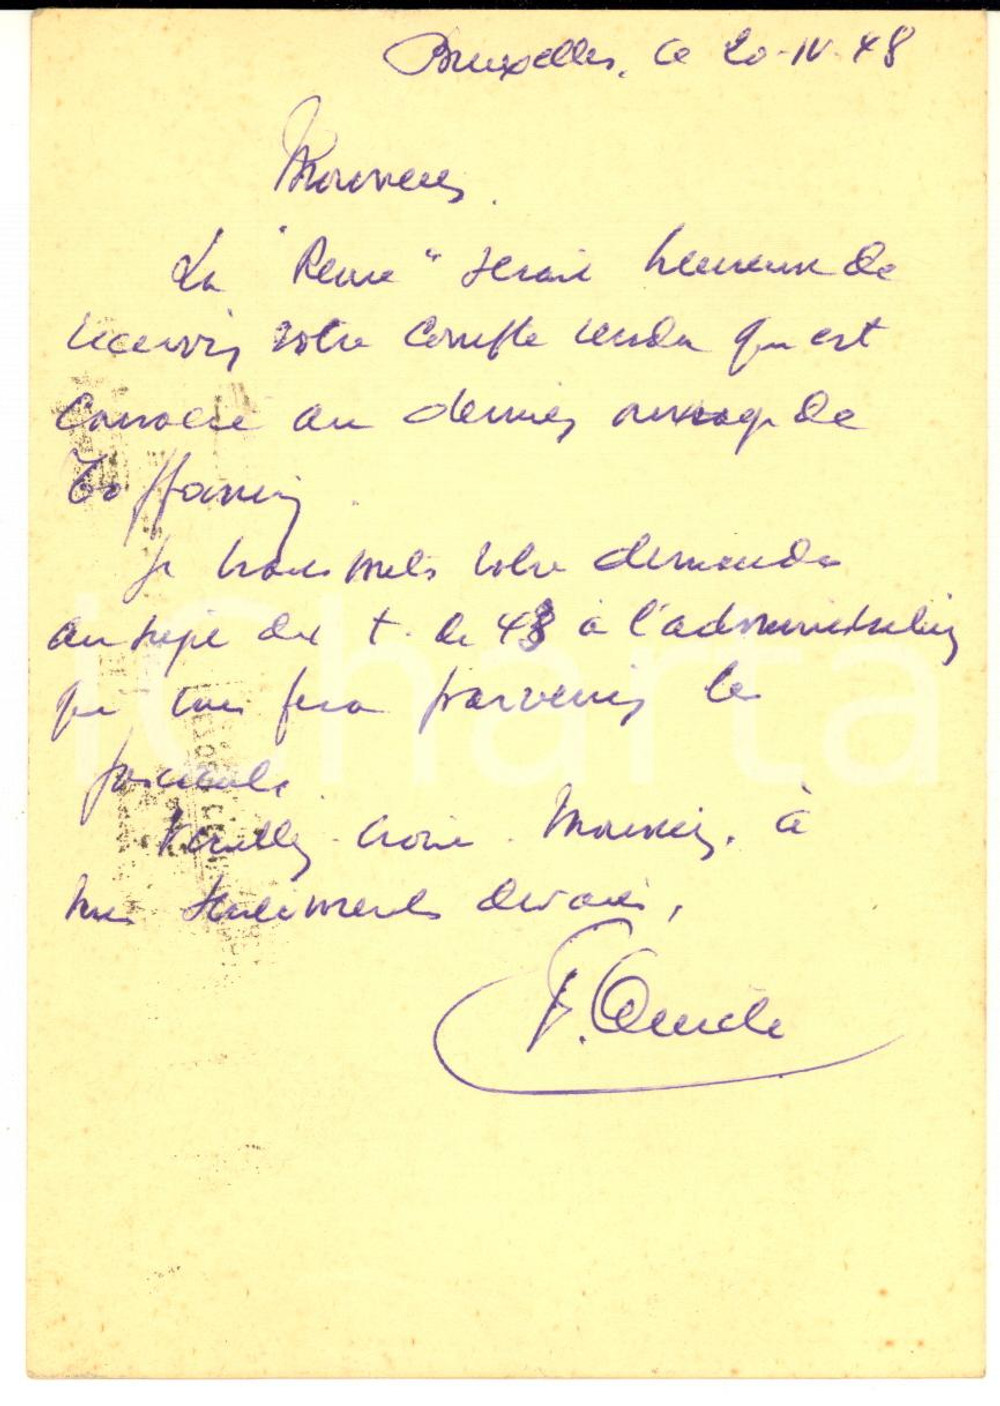 Bruxelles, le 20-IV-48
Monsieur,
La "Revue" serait heureuse de
recevoir votre compte rendu qui est
consacré au dernier ouvrage de
Toffanin.
Je transmets votre demande
au sujet du t. de 48 à l'administration
qui vous fera parvenir le
fascicule.
Veuillez croire, Monsieur, à
mes sentiments dévoués,
iCharta